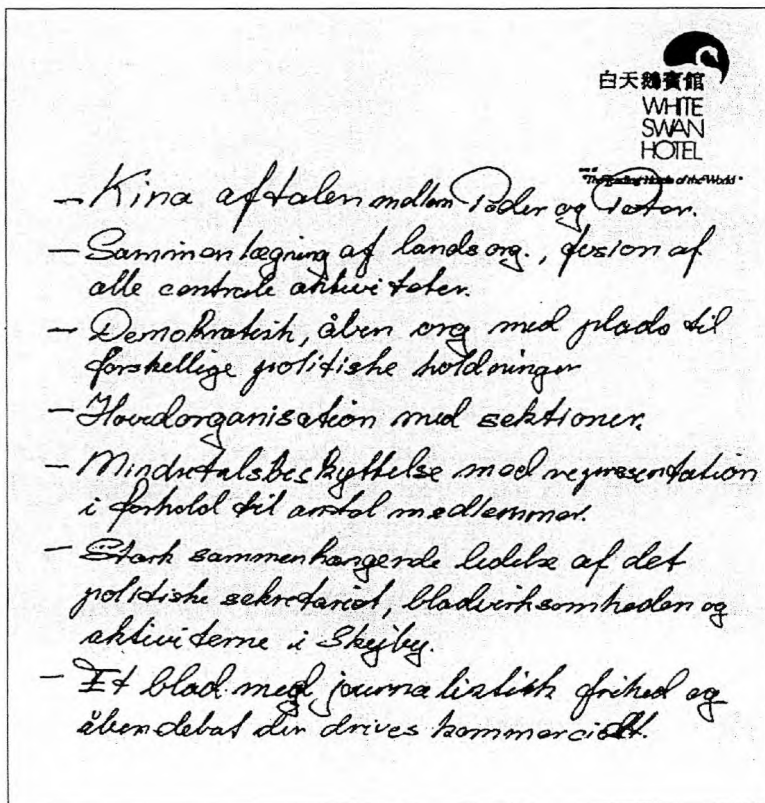 白天鵝賓館
WHITE
SWAN
HOTEL
"The Leading Hotels of the World"
– Kina aftalen mellem Peder og Peter.
– Sammenlægning af landsorg., fusion af
alle centrale aktiviteter.
– Demokratisk, åben org med plads til
forskellige politiske holdninger
– Hovedorganisation med sektioner.
– Mindretalsbeskyttelse med repræsentation
i forhold til antal medlemmer.
– Stærk sammenhængende ledelse af det
politiske sekretariat, bladvirksomheden og
aktiviterne i Skejby.
– Et blad med journalistisk frihed og
åben debat der drives kommercielt.